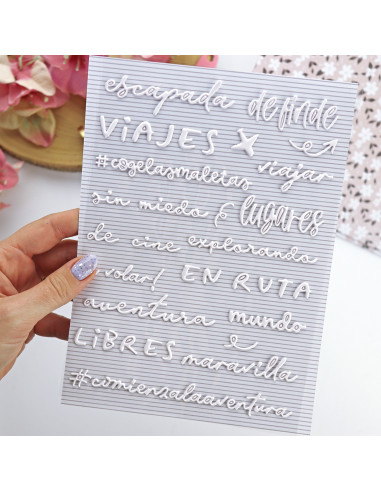 escapada definde
VIAJES viajar
#cogelasmaletas
sin miedo & lugares
de cine explorando
a volar! EN RUTA
aventura mundo
LIBRES maravilla
#comienzalaaventura